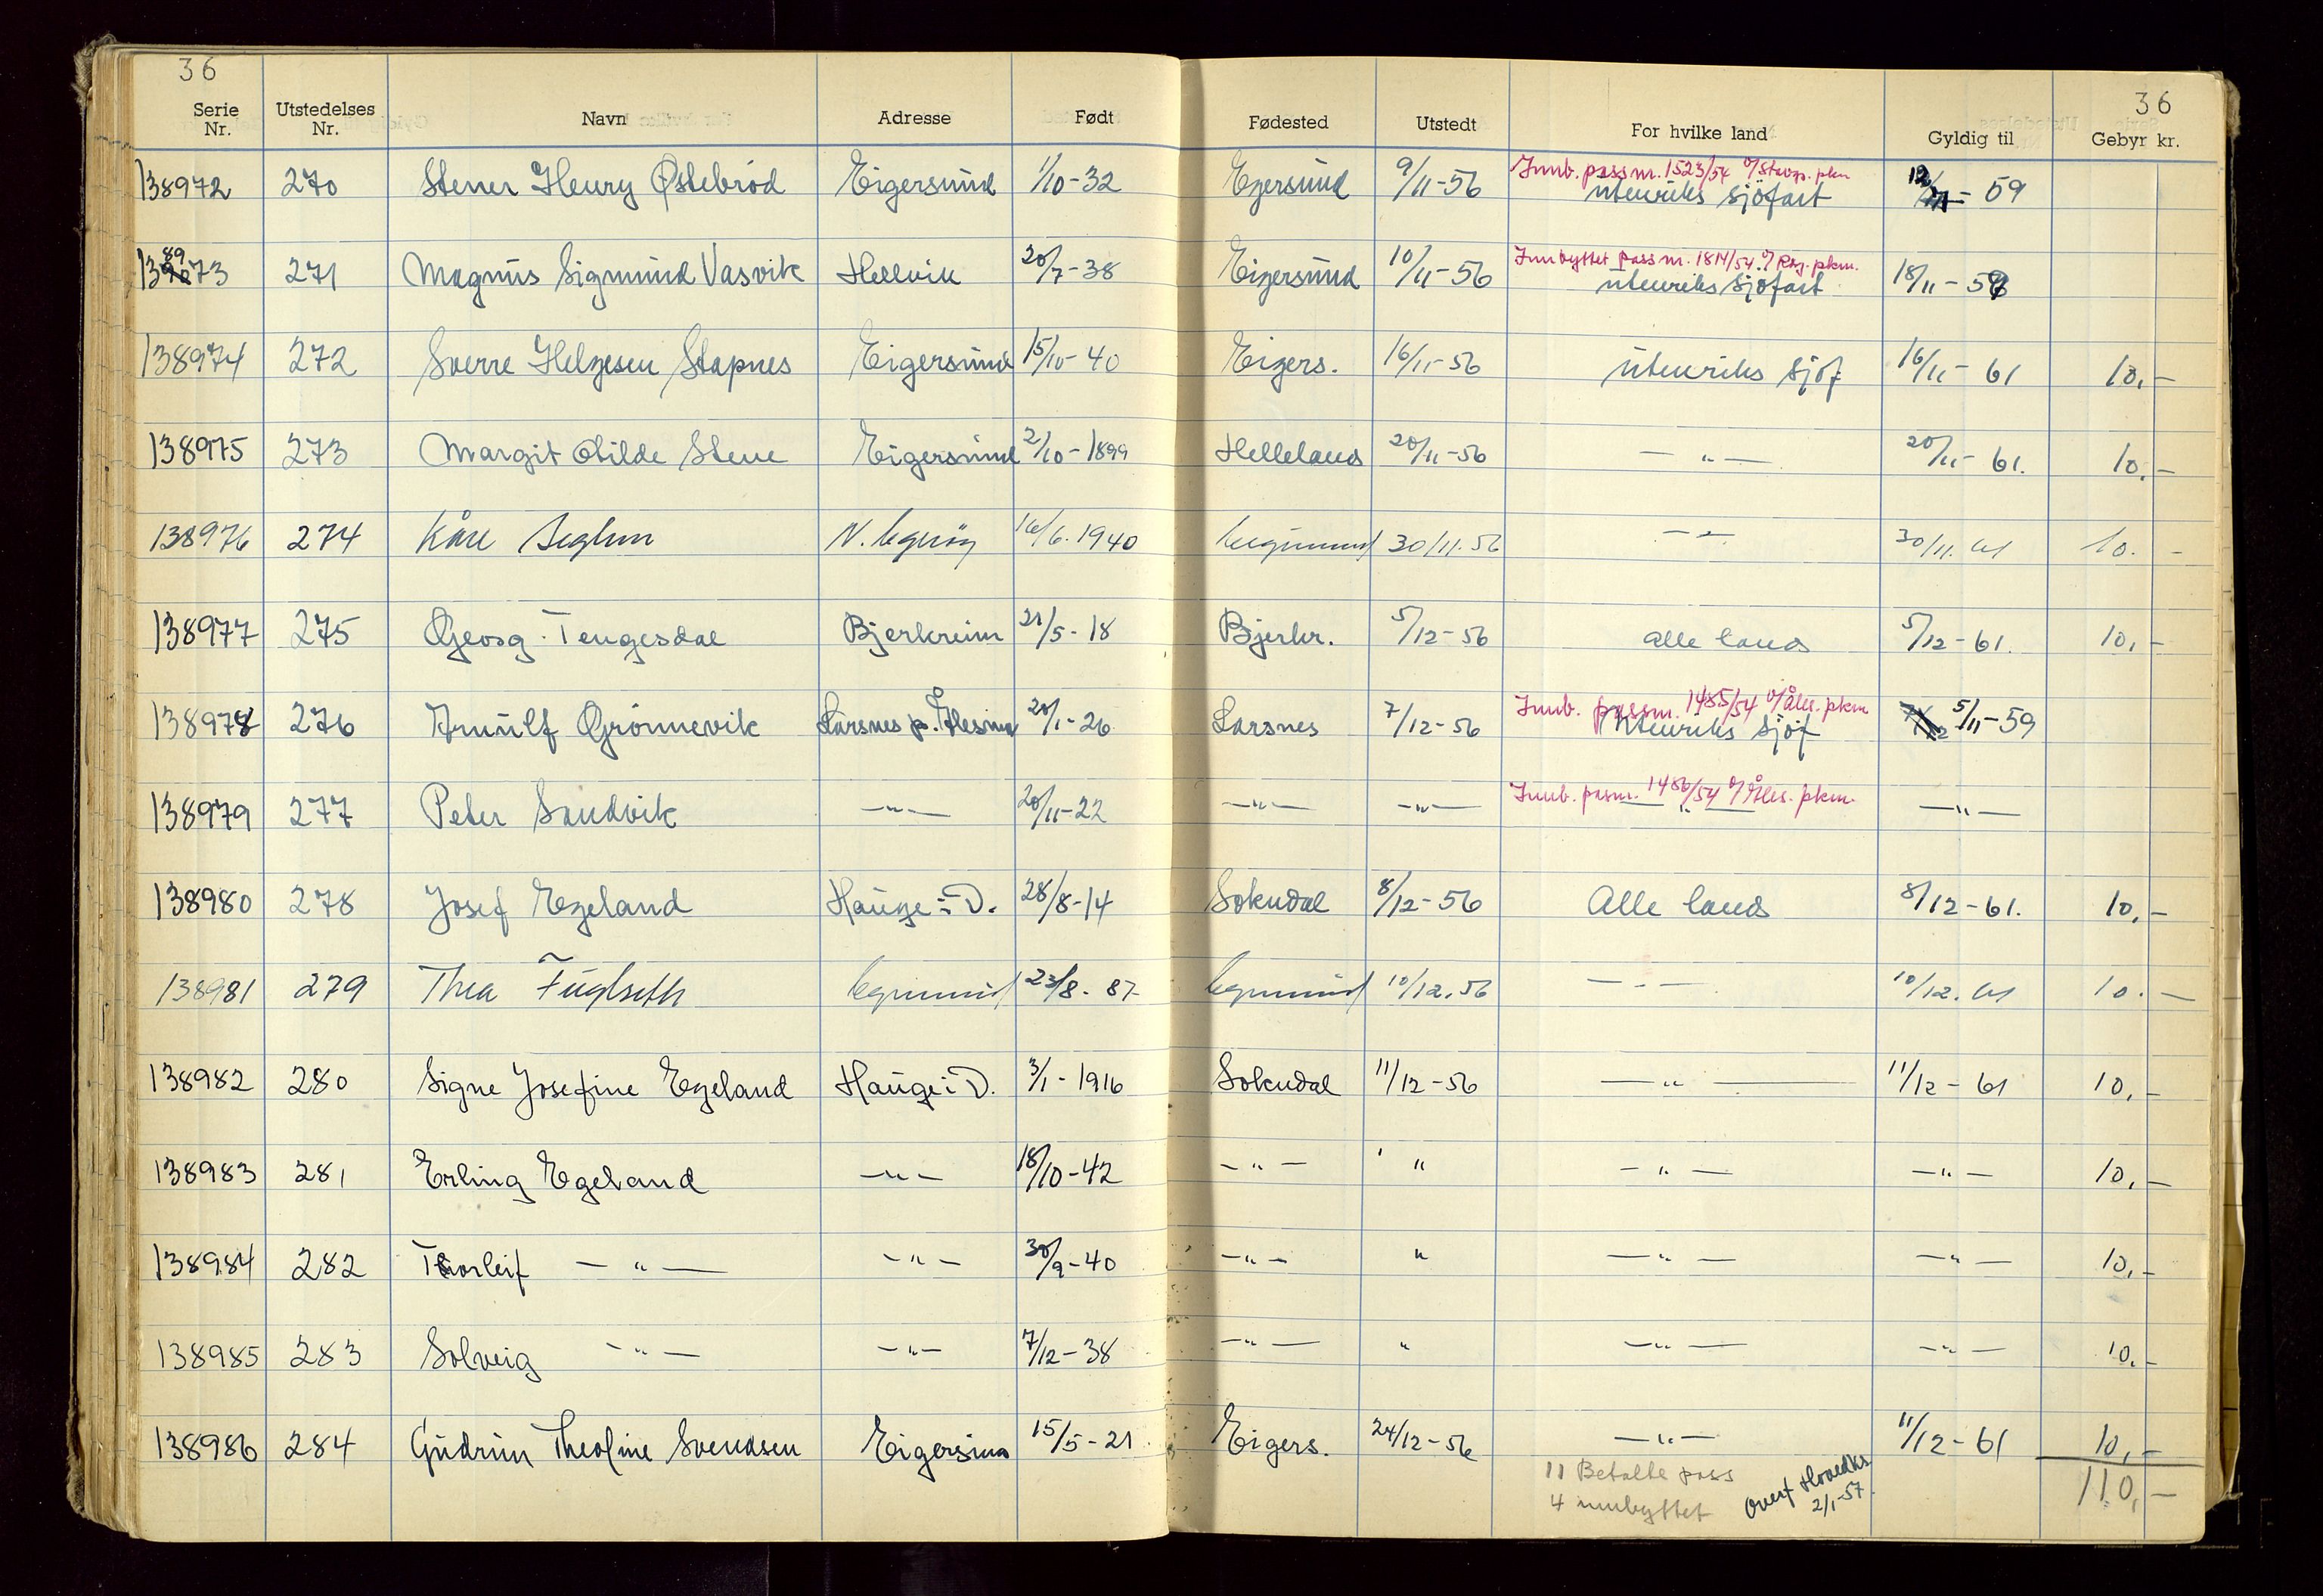 36 36
Serie Nr. Utstedelses Nr. Navn Adresse Født Fødested Utstedt For hvilke land Gyldig til Gebyr kr.
Innb. pass nr. 1523/54 v/ Stavgr. pkm
138972 270 Stener Henry Østebrød Eigersund 1/10-32 Egersund 9/11-56 utenriks sjöfart 12/11-59
Innbyttet pass nr. 1814/54 v/ Rog. pkm.
138973 271 Magnus Sigmund Vasvik Hellvik 20/7-38 Eigersund 10/11-56 utenriks sjöfart 18/11-59
138974 272 Sverre Helgesen Stapnes Eigersund 15/10-40 Eigers. 16/11-56 utenriks sjöf 16/11-61 10,-
138975 273 Margit Otilde Stene Eigersund 2/10-1899 Helleland 20/11-56 -"- 20/11-61. 10.-
138976 274 Kåre Seglem N. Egerøy 16/6.1940 Eigersund 30/11.56 -"- 30/11.61 10.-
138977 275 Georg Tengesdal Bjerkreim 21/5-18 Bjerkr. 5/12-56 alle land 5/12-61. 10,-
Innb. passnr. 1485/54 v/ Åles. pkm
138978 276 Arnulf Grönnevik Larsnes p. Ålesund 20/1-26 Larsnes 7/12-56 Utenriks sjöf 5/11-59
Innb. passnr. 1486/54 v/ Åles. pkm.
138979 277 Peter Sandvik -"- 20/11-22 -"- -"- -"- -"-
138980 278 Josef Egeland Hauge i D. 28/8-14 Sokndal 8/12-56 Alle land 8/12-61. 10,-
138981 279 Thea Fuglseth Egersund 23/8-87 Egersund 10/12.56 -"- 10/12.61 10.-
138982 280 Signe Josefine Egeland Hauge i D. 3/1-1916 Sokndal 11/12-56 -"- 11/12-61 10,-
138983 281 Erling Egeland -"- 18/10-42 -"- " -"- -"- 10,-
138984 282 Thorleif -"- -"- 30/9-40 -"- " -"- -"- 10,-
138985 283 Solveig -"- -"- 7/12-38 -"- " -"- -"- 10,-
138986 284 Gudrun Theoline Svendsen Eigersund 15/5-21 Eigers. 24/12-56 -"- 11/12-61 10,-
11 Betalte pass 110,-
4 innbyttet Overf Hovedks 2/1-57.